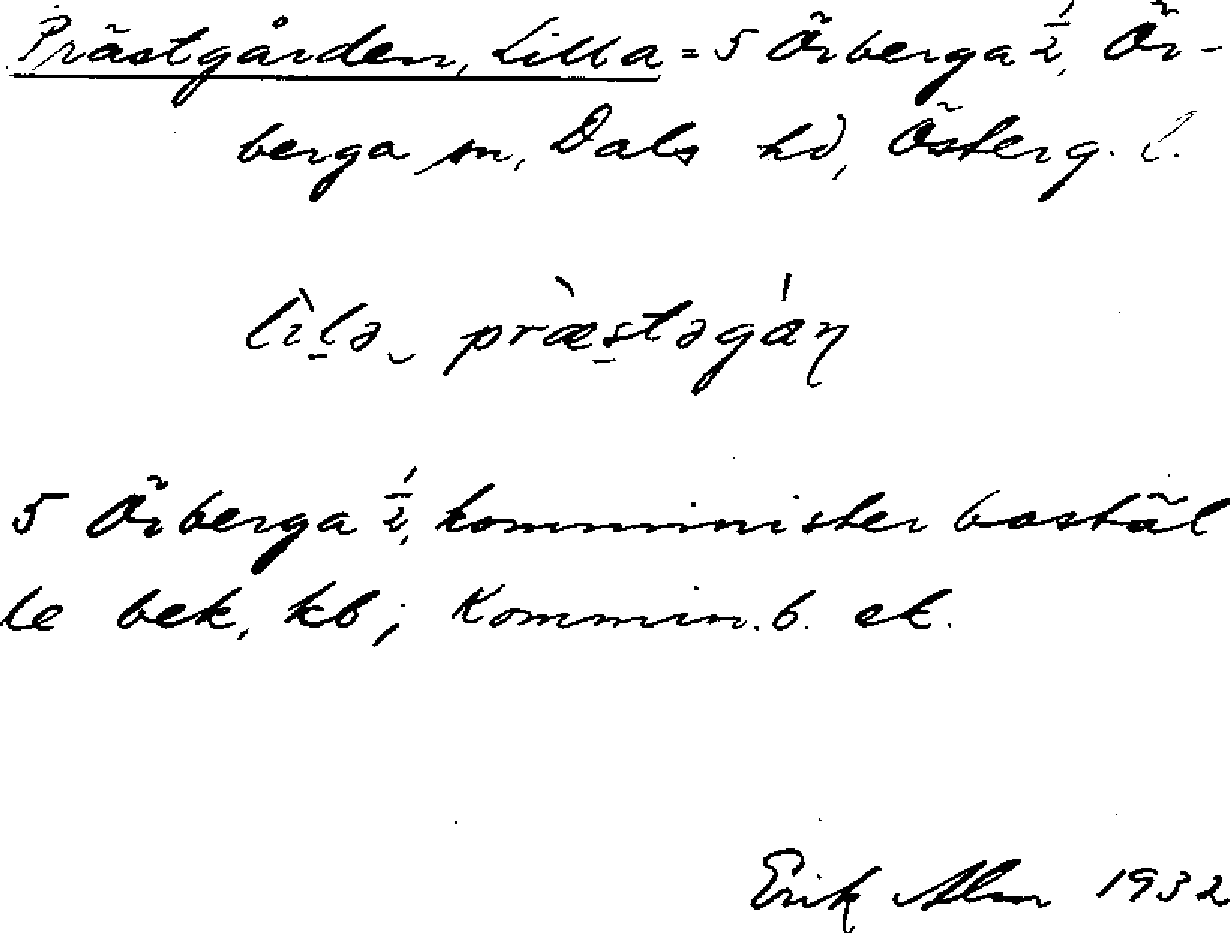 Prästgården, Lilla = 5 Örberga 1/2, Ör-
berga sn, Dals hd, Österg. l.
lìlə prӕ̀stəgán
5 Örberga 1/2, komministerbostäl
le bek. kb; Kommin.b. ek.
Erik Alm 1932